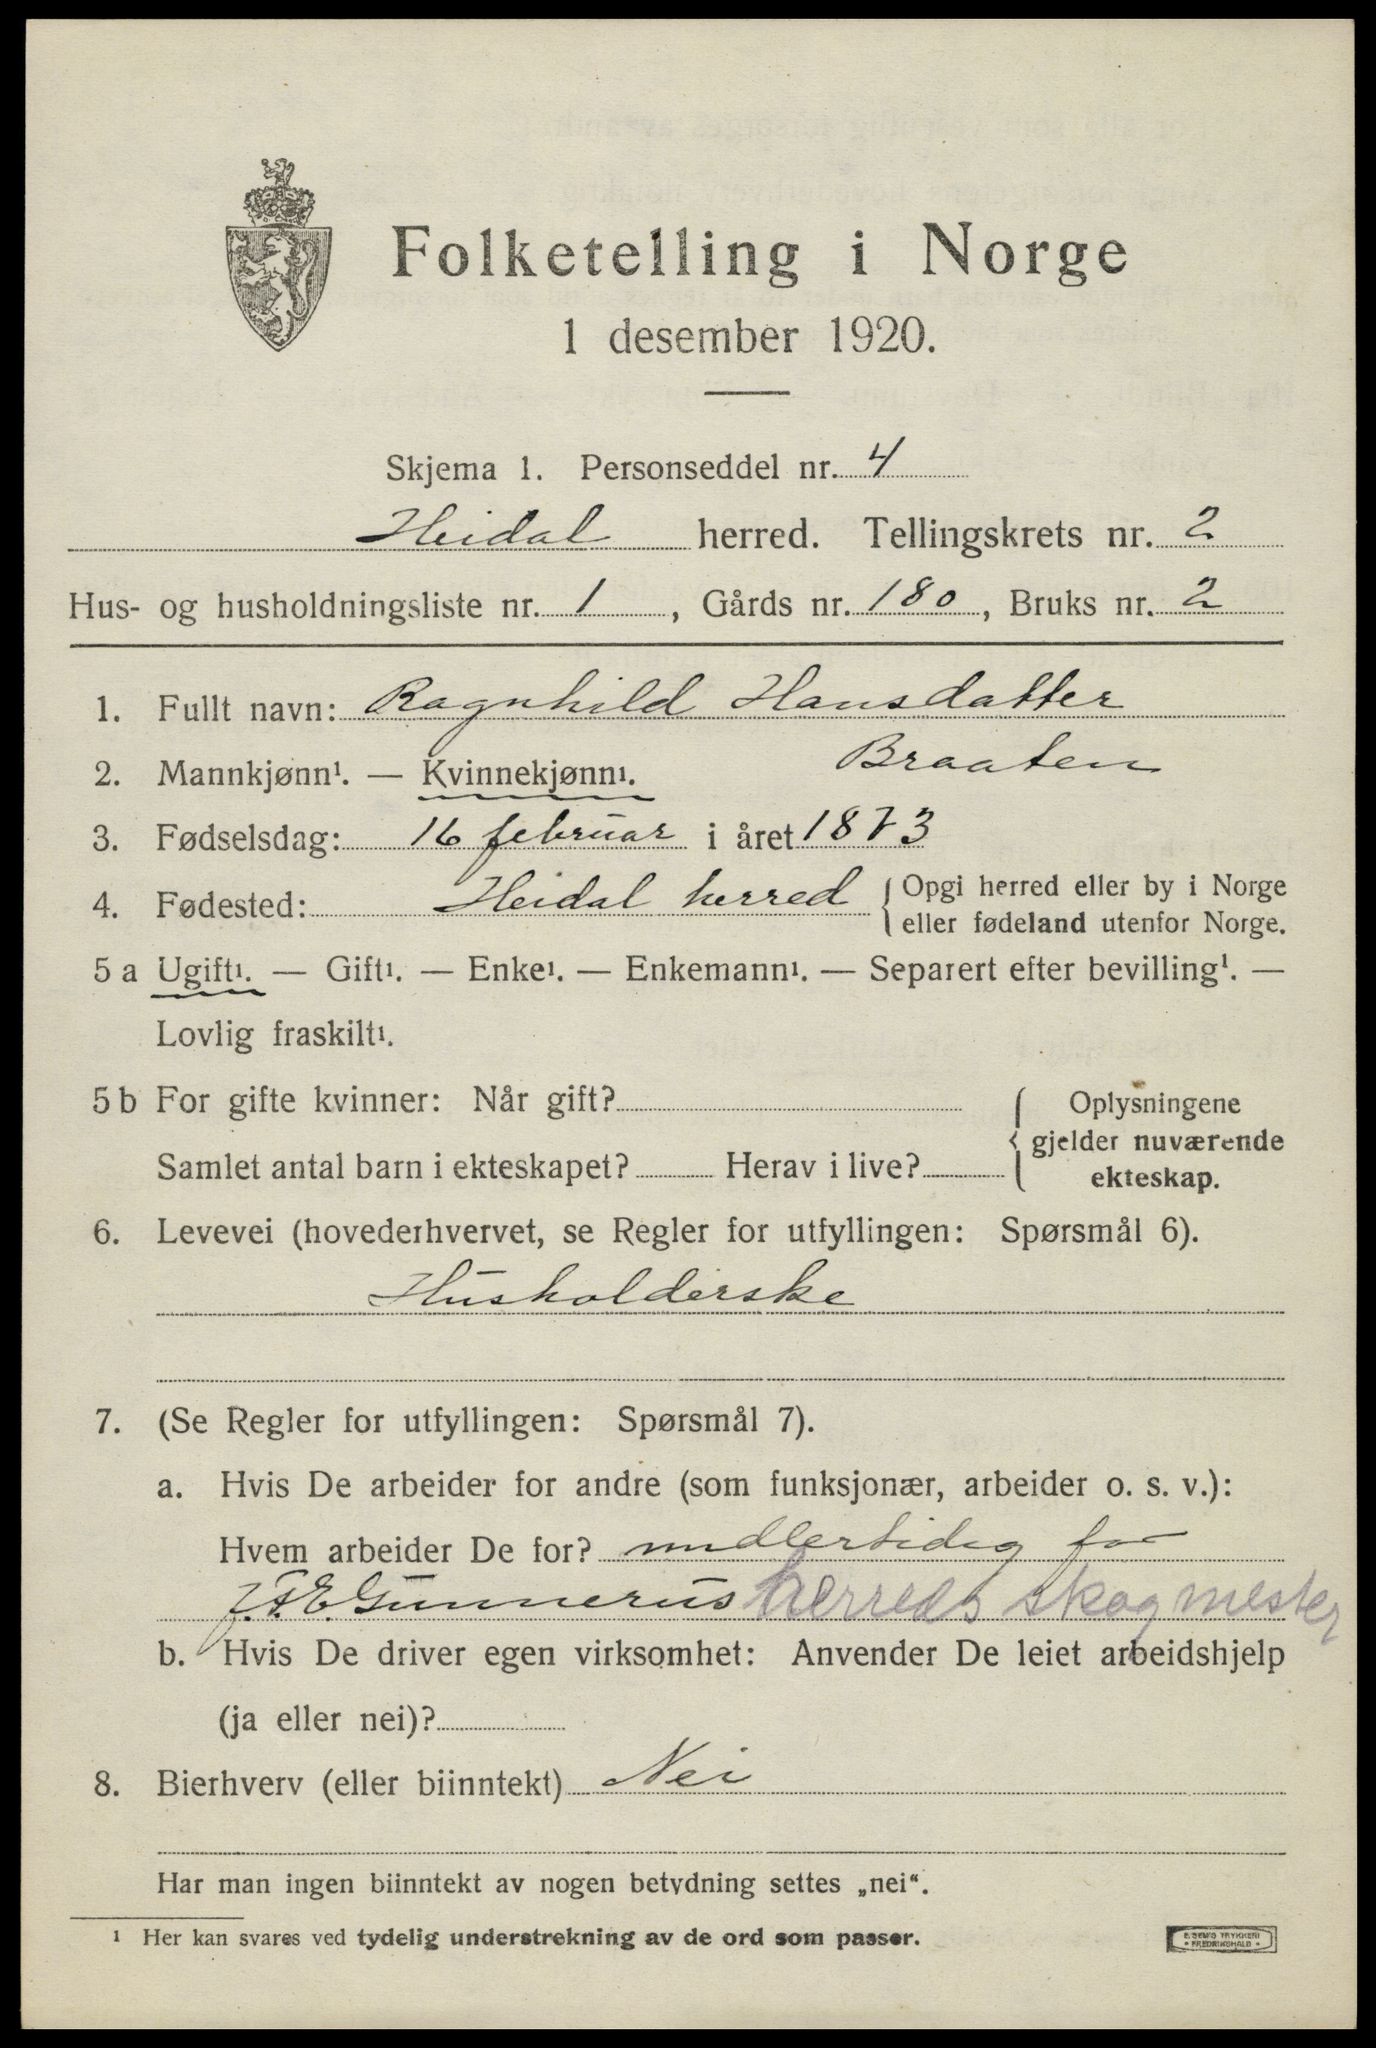 Folketelling i Norge
1 desember 1920.
Skjema 1. Personseddel nr. 4
Heidal herred. Tellingskrets nr. 2
Hus- og husholdningsliste nr. 1, Gårds nr. 180, Bruks nr. 2
1. Fullt navn: Ragnhild Hansdatter
2. Mannkjønn¹. — Kvinnekjønn¹. Braaten
3. Fødselsdag: 16 februar i året 1873
4. Fødested: Heidal herred { Opgi herred eller by i Norge
eller fødeland utenfor Norge.
5 a Ugift¹. — Gift¹. — Enke¹. — Enkemann¹. — Separert efter bevilling¹. —
Lovlig fraskilt¹.
5 b For gifte kvinner: Når gift? { Oplysningene
gjelder nuværende
Samlet antal barn i ekteskapet? Herav i live? ekteskap.
6. Levevei (hovederhvervet, se Regler for utfyllingen: Spørsmål 6).
Husholderske
7. (Se Regler for utfyllingen: Spørsmål 7).
a. Hvis De arbeider for andre (som funksjonær, arbeider o. s. v.):
Hvem arbeider De for? midlertidig for
Gunnerus herreds skogmester
b. Hvis De driver egen virksomhet: Anvender De leiet arbeidshjelp
(ja eller nei)?
8. Bierhverv (eller biinntekt) Nei
Har man ingen biinntekt av nogen betydning settes „nei“.
¹ Her kan svares ved tydelig understrekning av de ord som passer.
E. SEM'S TRYKKERI
FREDRIKSHALD